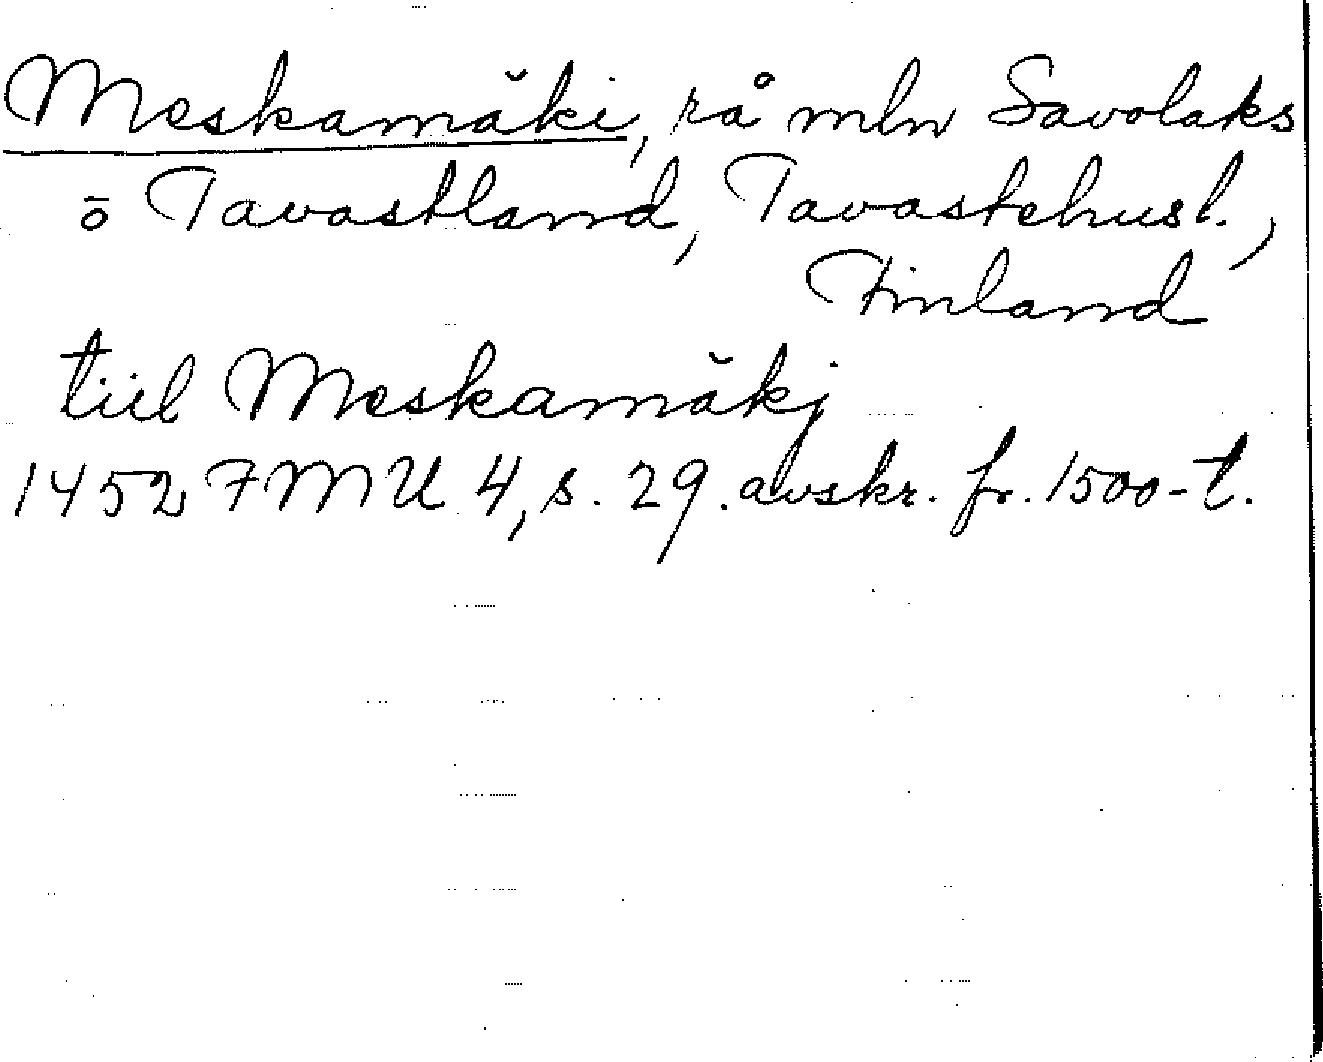 Meskamäki, rå mln Savolaks
ō Tavastland, Tavastehusl.,
Finland
tiil Meskamäkj
1452 FMU 4, s. 29. avskr. fr. 1500-t.